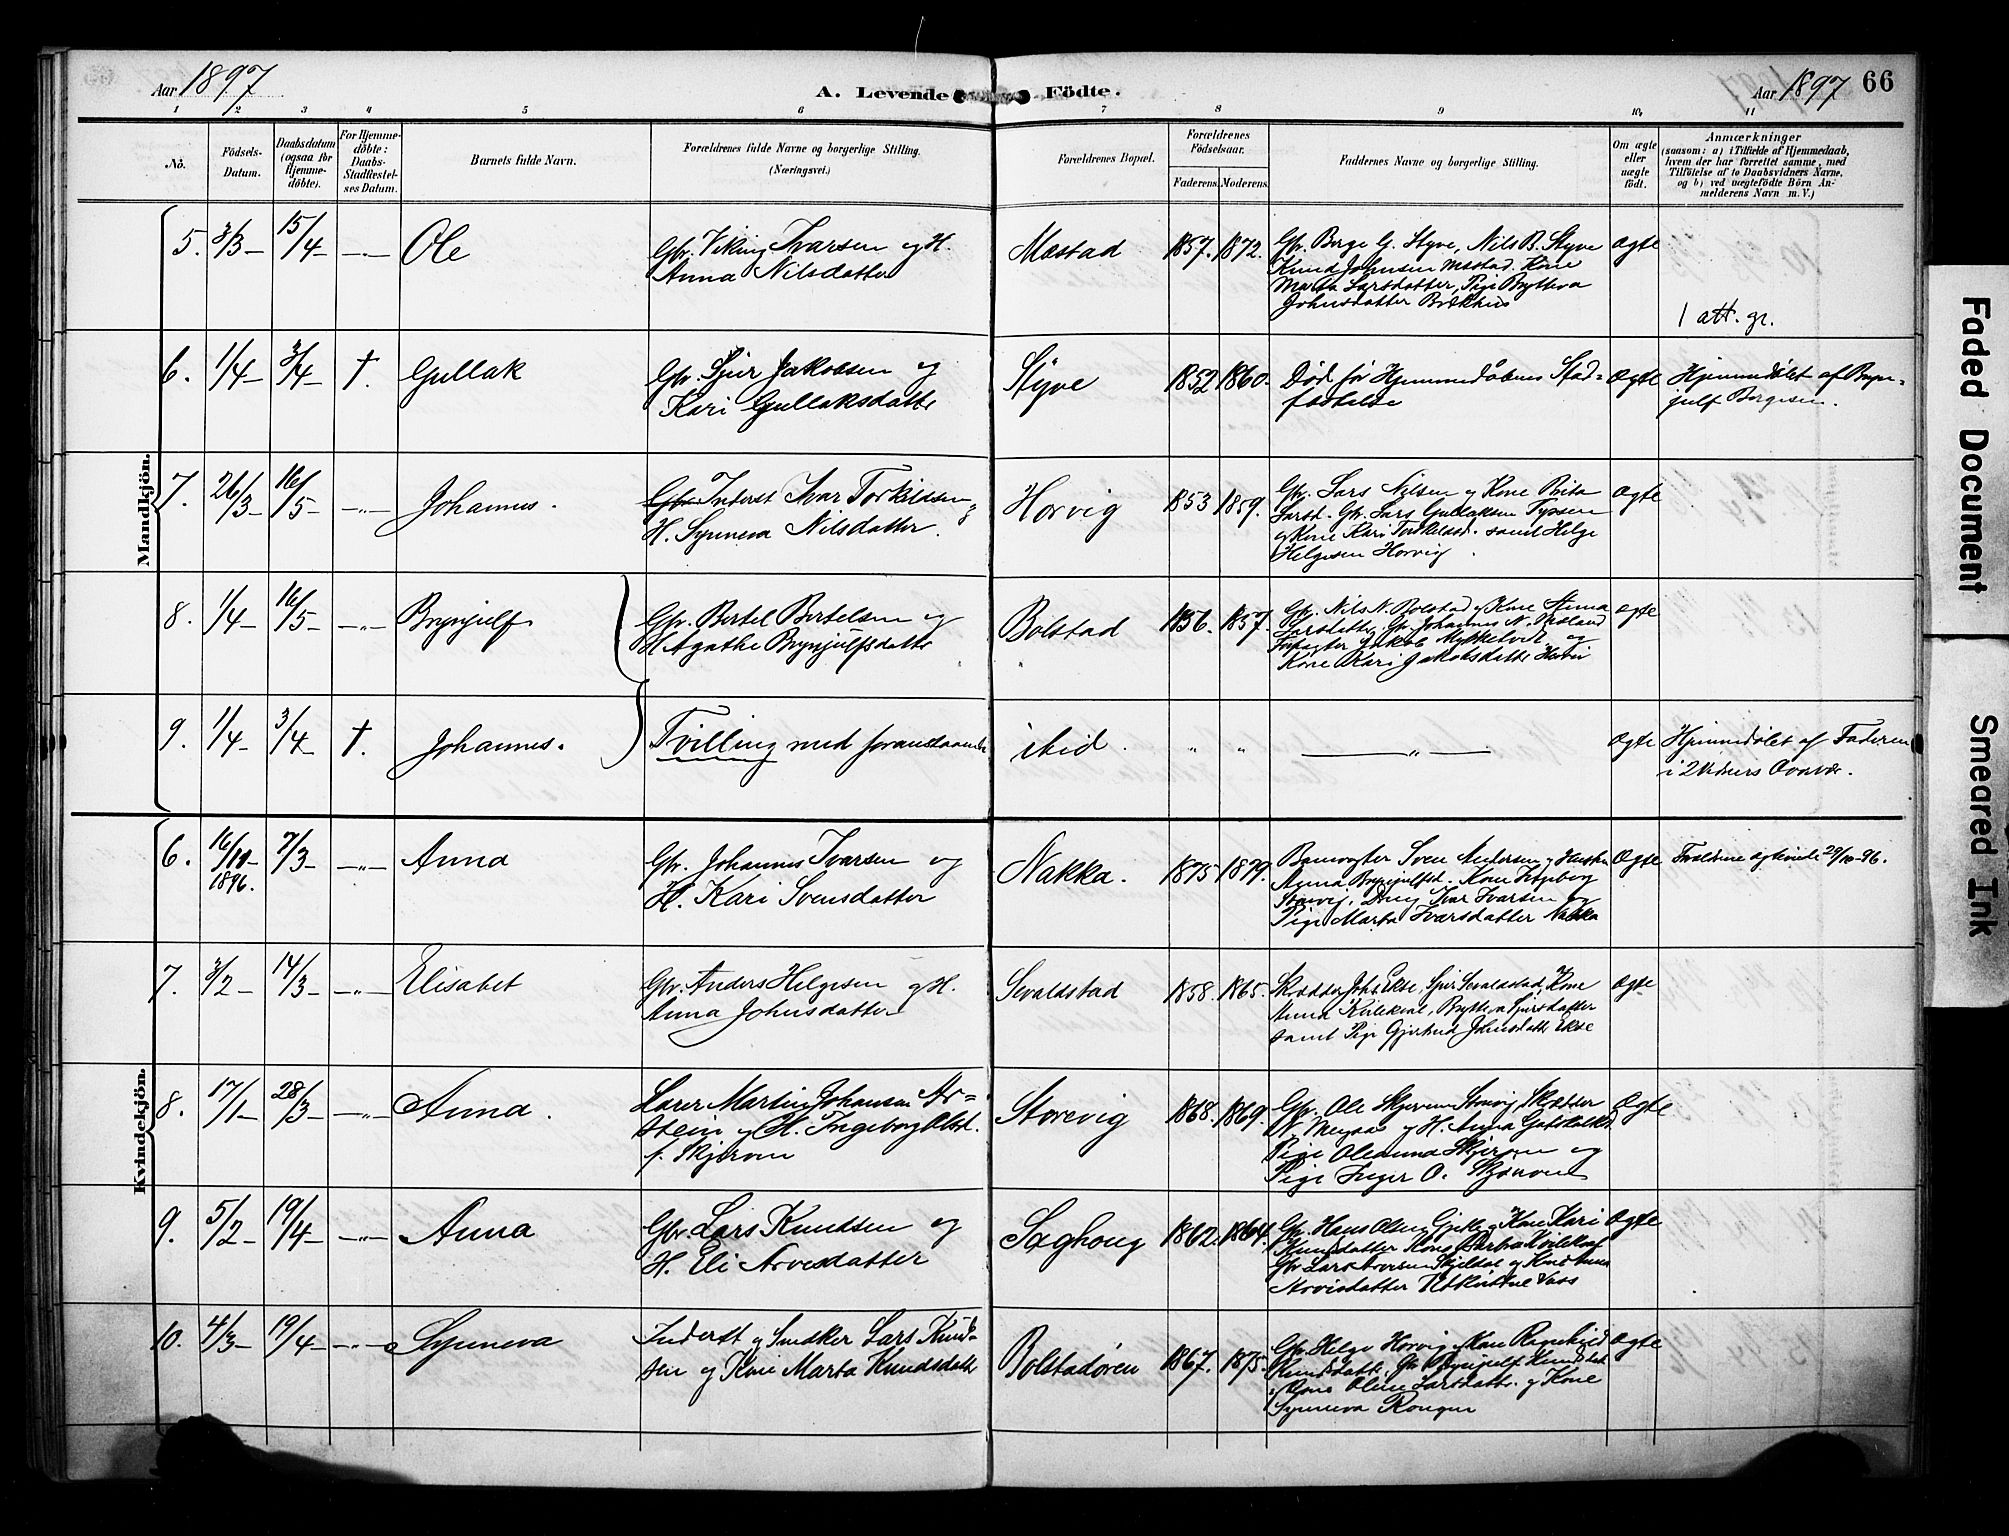 Aar 1897
A. Levende Födte.
Aar 1897 66
1 2 3 4 5 6 7 8 9 10 11
Nö.
Födsels-
Datum.
Daabsdatum
(ogsaa for
Hjemme-
döbte).
For Hjemme-
döbte:
Daabs-
Stadfæstel-
ses Datum.
Barnets fulde Navn.
Forældrenes fulde Navne og borgerlige Stilling.
(Næringsvei.)
Forældrenes Bopæl.
Forældrenes
Födselsaar.
Faderens. Moderens.
Faddernes Navne og borgerlige Stilling.
Om ægte
eller
uægte
født.
Anmærkninger
(saasom: a) i Tilfælde af Hjemmedaab,
hvem der har forrettet samme, med
Tilföielse af to Daabsvidners Navne,
og b) ved uægtefödte Börn An-
melderens Navn m. V.)
Mandkjön.
5. 3/3 15/4 Ole
Gbr. Viking Ivarsen og H.
Anna Nilsdatter
Mæstad 1857. 1872.
Gbr. Berge G. Styve, Nils B. Styve
Knud Johnsen Mæstad. Kone
Marta Larsdatter, Pige Brytteva
Johnsdatter Brækhus
ægte
1 att. gr.
6. 1/4 3/4 †. Gullak
Gbr. Sjur Jakobsen og
Kari Gullaksdatter
Styve 1852 1860.
Død før Hjemmedåbens Stad-
fæstelse
ægte
Hjemmedøbt af Bryn-
julf Bergesen.
7. 26/3 16/5 Johannes.
Inderst Ivar Torkildsen og
H. Synneva Nilsdatter.
Horvig 1853 1859.
Gbr. Lars Nilsen og Kone Brita
Larsd. Gbr. Lars Gullaksen
og Kone Kari samt Helge
Helgesen Horvig.
ægte
8. 1/4 16/5 Brynjulf
Gbr. Bertel Bertelsen og
H. Agathe Brynjulfsdatter
Bolstad 1856. 1857.
Gbr. Nils N. Bolstad og Kone Anna
Larsdatter. Gbr. Johannes N.
Jakob Mykkeltvedt og
Kone Kari Jakobsdatter
ægte
9. 1/4 3/4 †. Johannes.
Tvilling med foranstaaende
ibid. " " "
ægte
Hjemmedøbt af Faderen
i 2 Vidners Overvær.
Kvindekjön.
6. 16/10 1896. 7/3 Anna
Gbr. Johannes Ivarsen og
H. Kari Svensdatter
Nakka. 1875 1879.
Banevogter Sven Andersen og Hustru
Anna Brynjulfsd. Kone Ingeborg
Storvig, Dreng Ivar Ivarsen og
Pige Marta Ivarsdatter Nakka
ægte
Forældrene ægteviede 29/10-96.
7. 3/2 14/3 Elisabet
Gbr. Anders Helgesen og H.
Anna Johnsdatter
Sevaldstad 1858. 1865.
Skrædder Johs Ekse, Sjur Sevaldstad, Kone
Anna Kvilekval, Brytteva Sjursdatter
samt Pige Gjertrud Johnsdatter Ekse
ægte
8. 17/1 28/3 Anna.
Lærer Martin Johansen Ar-
stein og H. Ingeborg Olsd.
f. Skjerven
Storevig 1868. 1869.
Gbr. Ole Skjerven Storvig, Skrædder
N. og H. Anna
Pige Oleanna Skjerven og
Pige Inger O. Skjerven
ægte
9. 5/2 19/4 Anna
Gbr. Lars Knudsen og
H. Eli Arvesdatter
Saghaug 1862. 1864.
Gbr. Hans Olsen og Kone Kari
Knudsdatter Kone Barbro
Gbr. Lars Arvesen og Kone Anna
Arvesdatter Voss
ægte
10. 4/3 19/4 Synneva
Inderst og Snedker Lars Knud-
sen og Kone Marta Knudsdatter
Bolstadøren 1867. 1875.
Gbr. Helge Horvig, Kone Ragnhild
Knudsdatter. Gbr. Brynjulf
og Kone Oline Larsdatter og Kone
Synneva
ægte
Faded Document
Smeared Ink